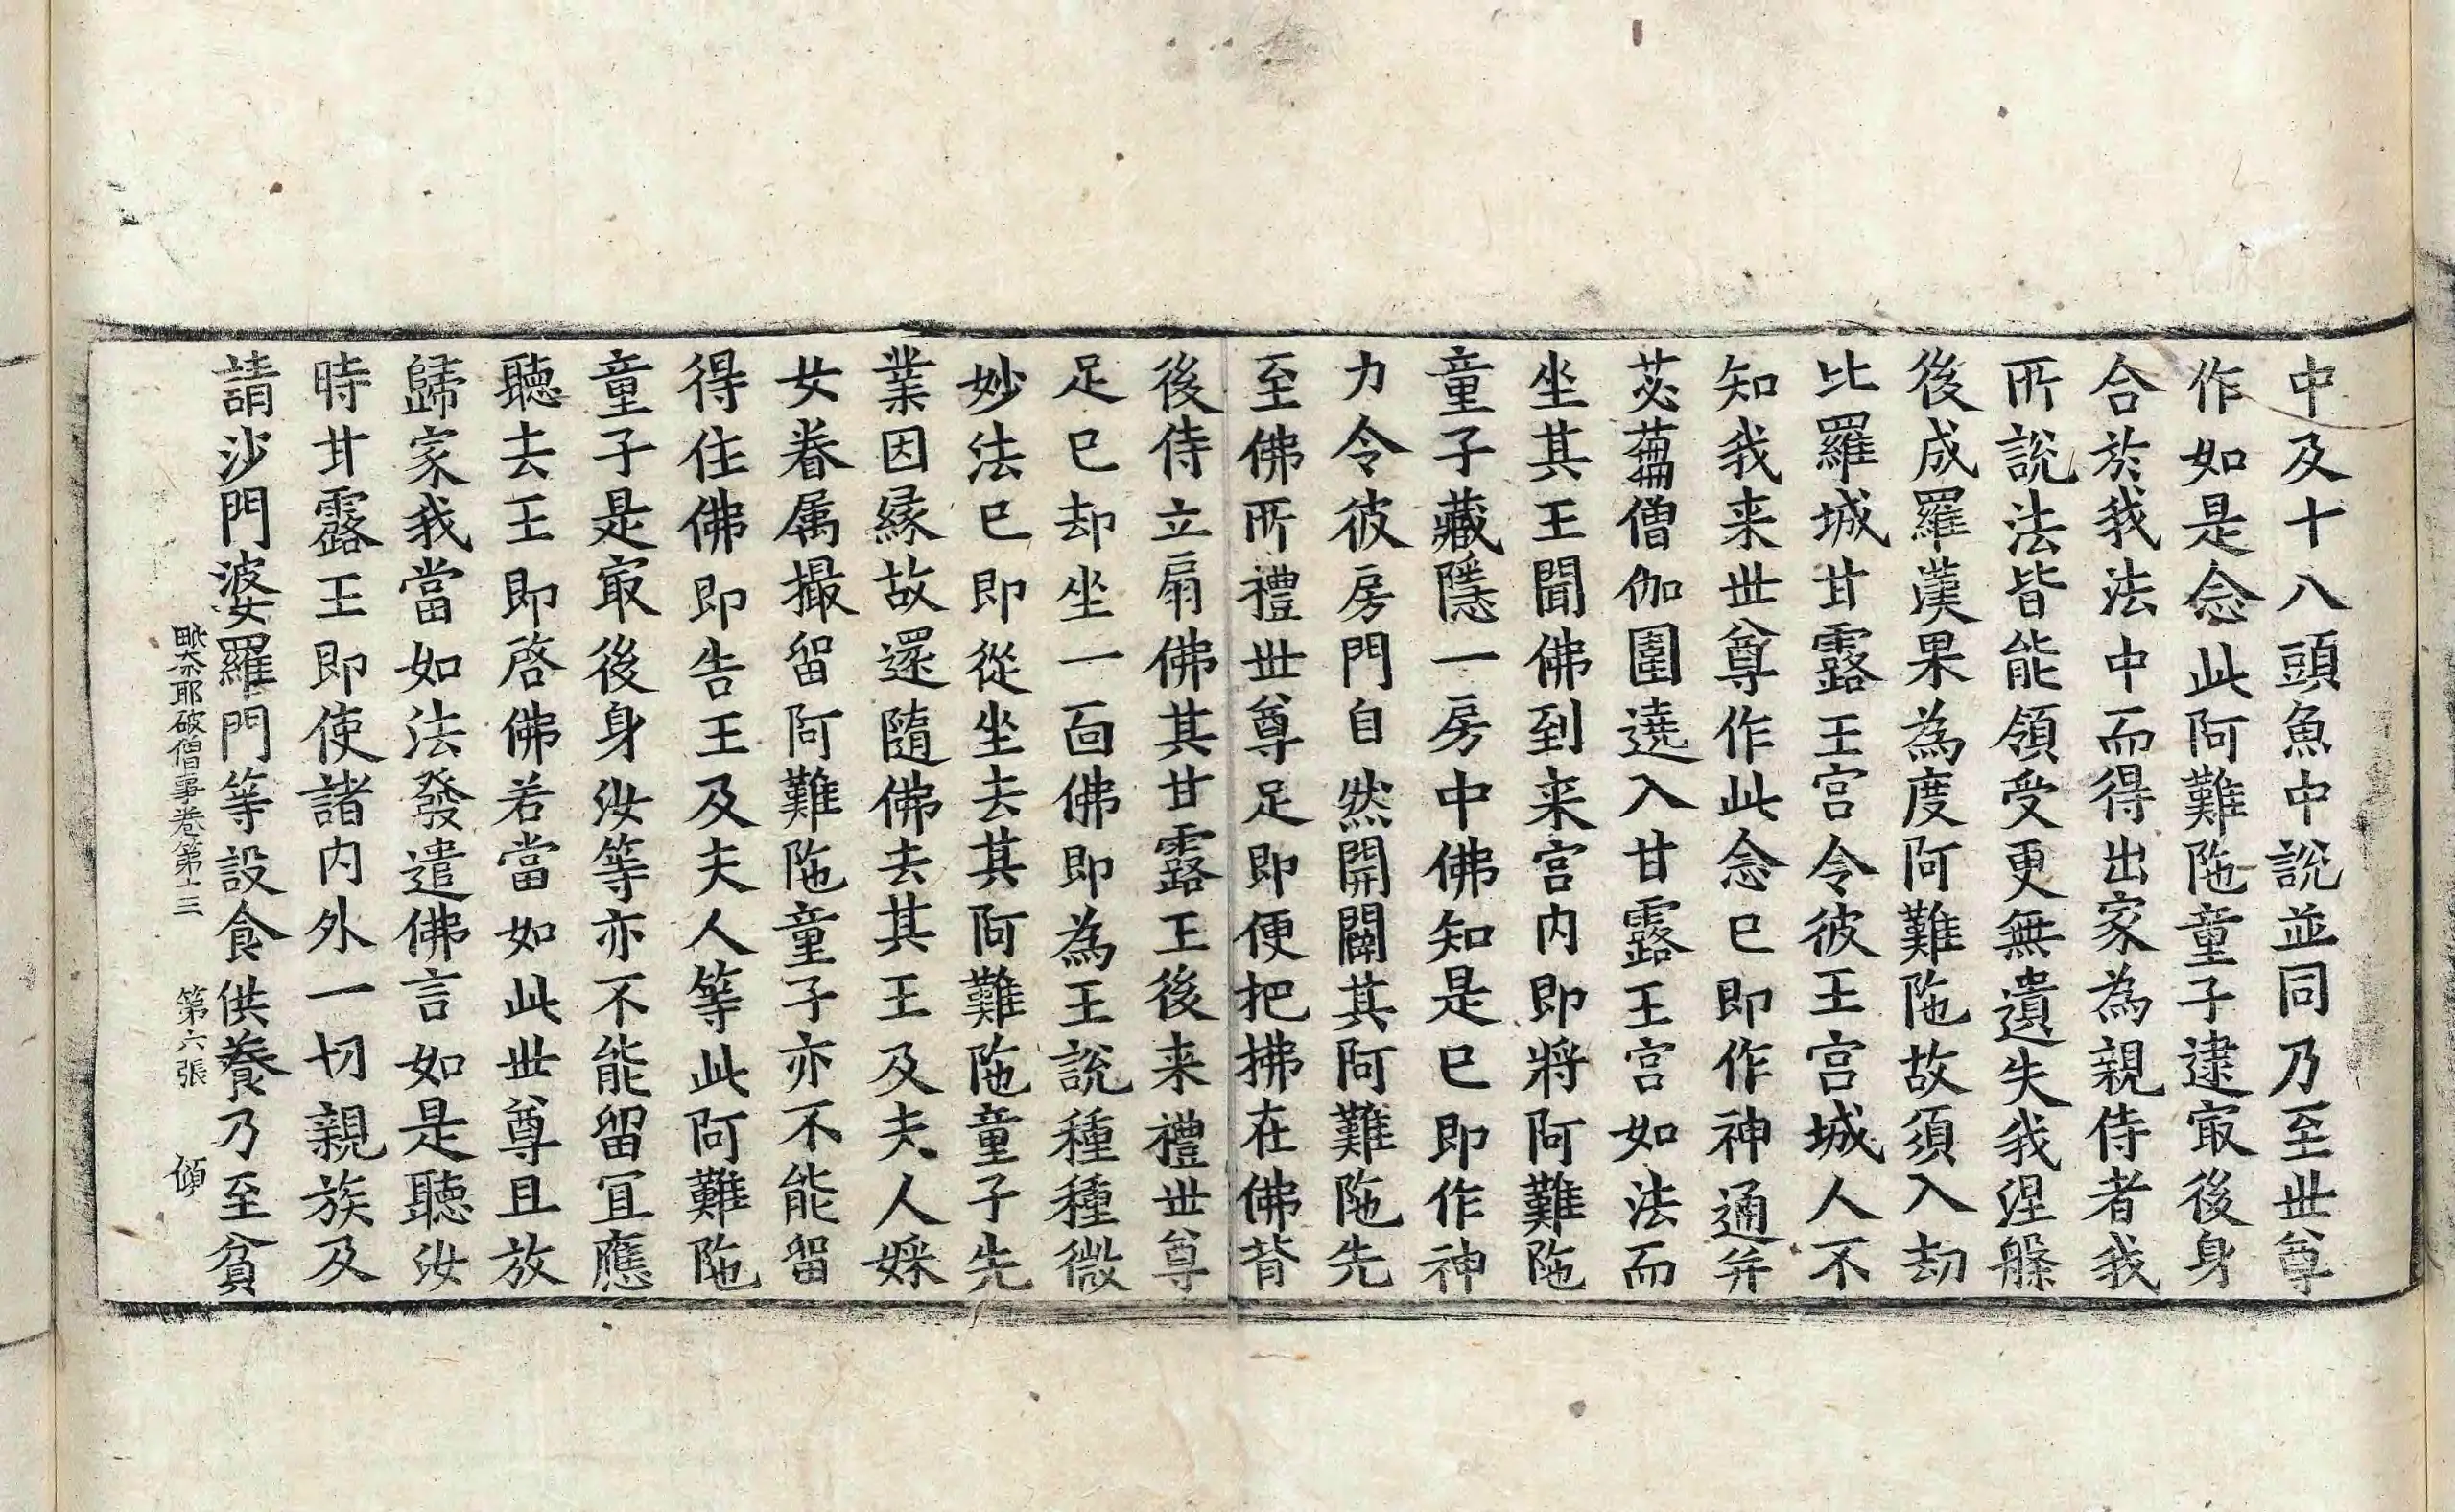 中及十八頭魚中說並同乃至世尊
作如是念此阿難陁童子逮㝡後身
合於我法中而得出家為親侍者我
所說法皆能領受更無遺失我涅槃
後成羅漢果為度阿難陁故須入劫
比羅城甘露王宫令彼王宫城人不
知我来世尊作此念已即作神通并
苾蒭僧伽圍遶入甘露王宫如法而
坐其王聞佛到来宫内即將阿難陁
童子藏隱一房中佛知是已即作神
力令彼房門自然開闢其阿難陁先
至佛所禮世尊足即便把拂在佛背
後侍立扇佛其甘露王後来禮世尊
足已却坐一面佛即為王說種種微
妙法已即從坐去其阿難陁童子先
業因緣故還隨佛去其王及夫人婇
女眷属撮留阿難陁童子亦不能留
得住佛即告王及夫人等此阿難陁
童子是㝡後身汝等亦不能留冝應
聽去王即啓佛若當如此世尊且放
歸家我當如法發遣佛言如是聽汝
時甘露王即使諸内外一切親族及
請沙門婆羅門等設食供養乃至貧
毗奈耶破僧事卷第十三 第六張 傾